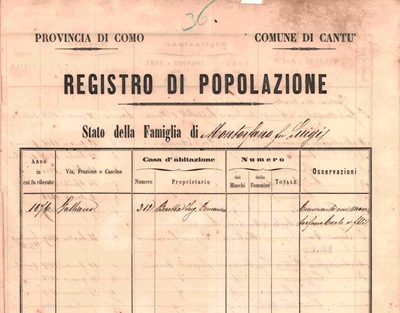 36
PROVINCIA DI COMO
COMUNE DI CANTU'
REGISTRO DI POPOLAZIONE
Stato della Famiglia di Montorfano fu Luigi
Anno
in cui fu rilevato
Via, Frazione o Cascina
Casa d'abitazione
Numero
Proprietario
Numero
dei Maschi
delle Femmine
TOTALE
Osservazioni
1876
Galliano
319